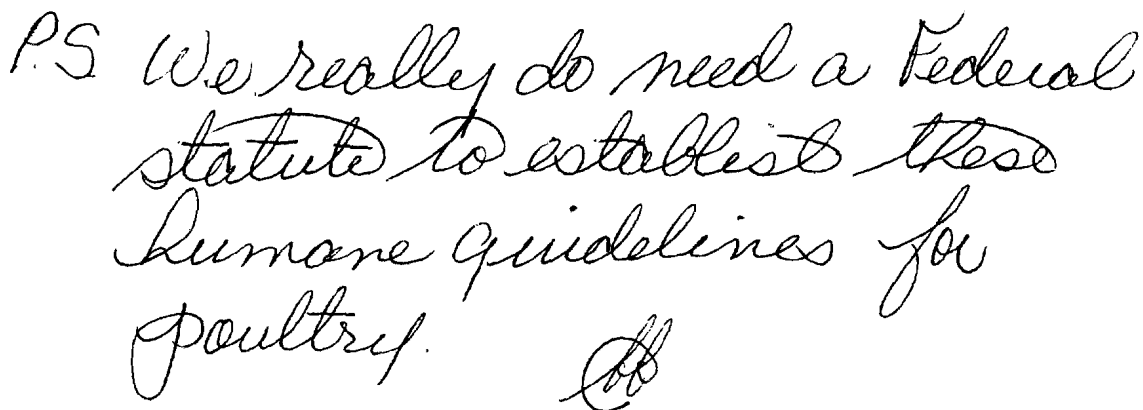 P.S. We really do need a Federal
statute to establish these
humane guidelines for
poultry.